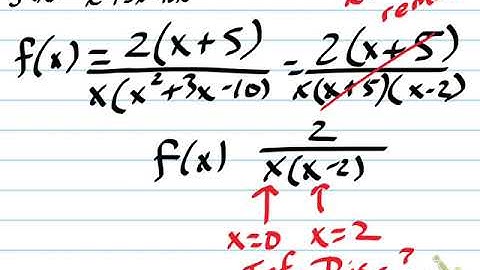 f(x) = 2(x+5) / x(x²+3x-10) = 2(x+5) / x(x+5)(x-2)
f(x) 2 / x(x-2)
x=0 x=2